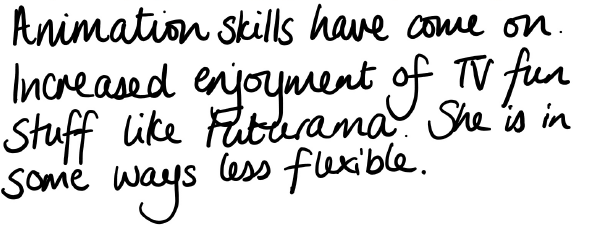 Animation skills have come on.
Increased enjoyment of TV fun
stuff like Futurama. She is in
some ways less flexible.